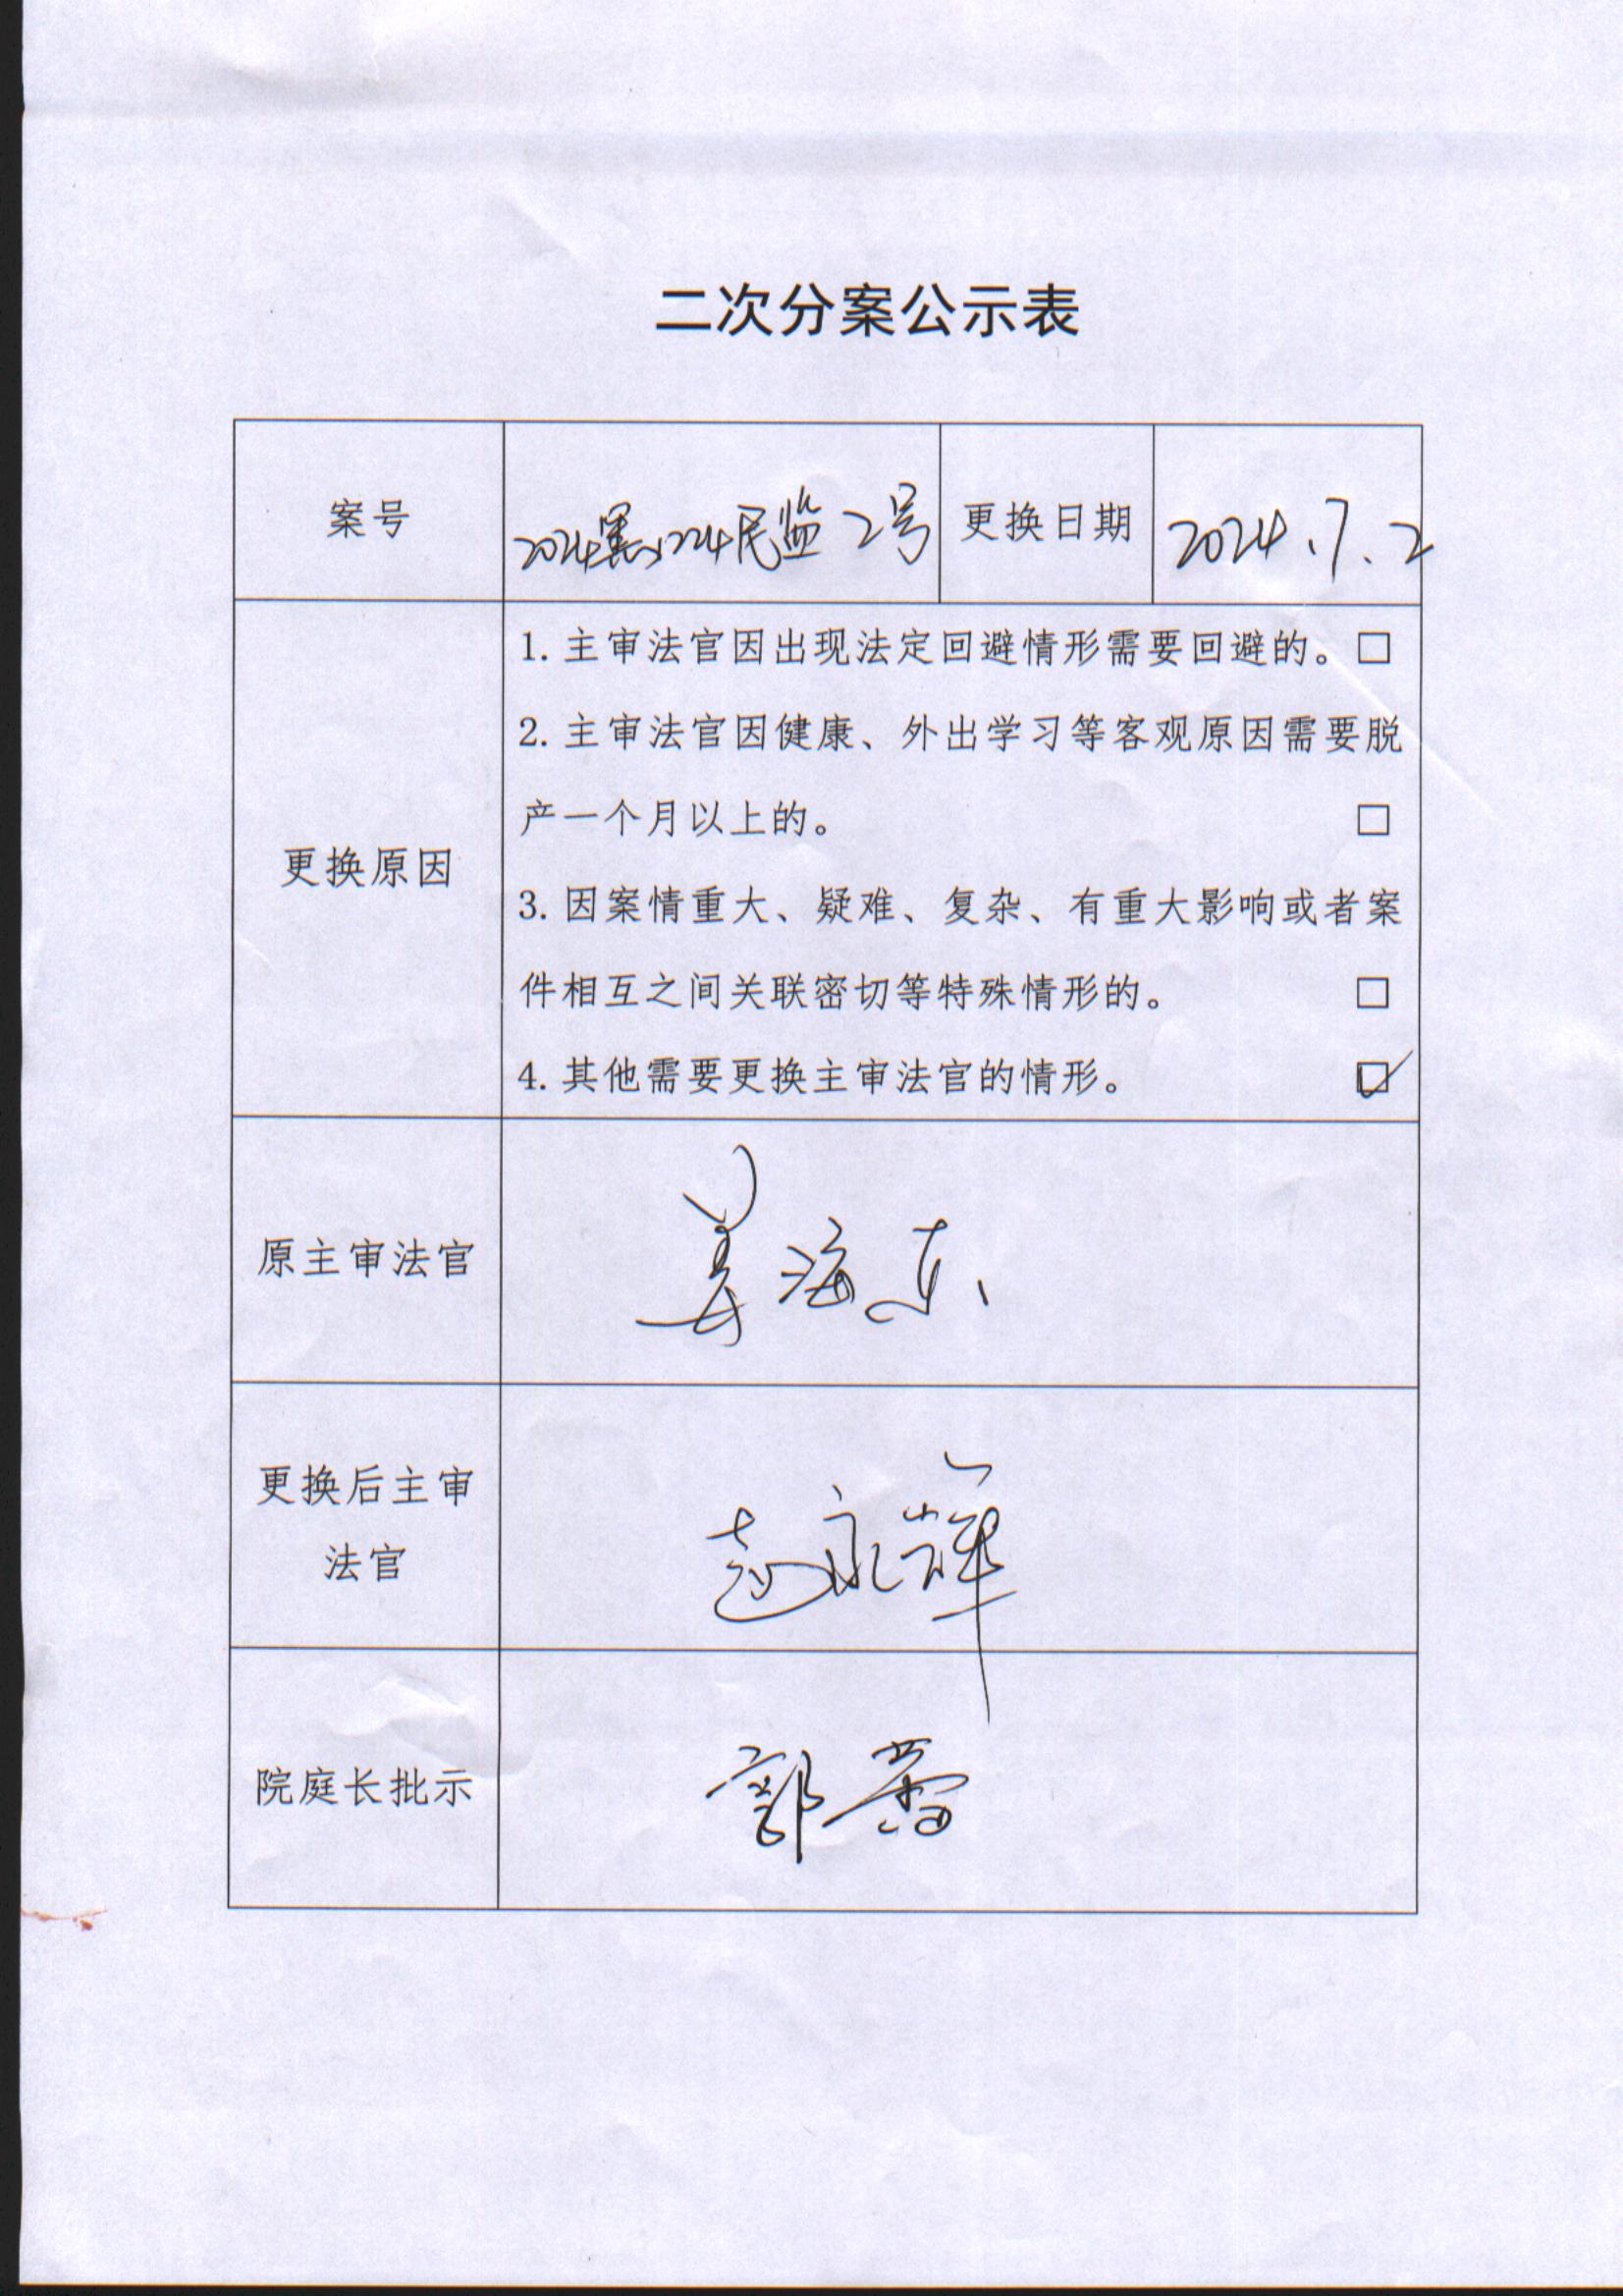 二次分案公示表
案号 2024黑1224民监2号 更换日期 2024.7.2
更换原因
1.主审法官因出现法定回避情形需要回避的。□
2.主审法官因健康、外出学习等客观原因需要脱
产一个月以上的。□
3.因案情重大、疑难、复杂、有重大影响或者案
件相互之间关联密切等特殊情形的。□
4.其他需要更换主审法官的情形。☑
原主审法官 姜海东
更换后主审
法官 赵永辉
院庭长批示 郭蕾